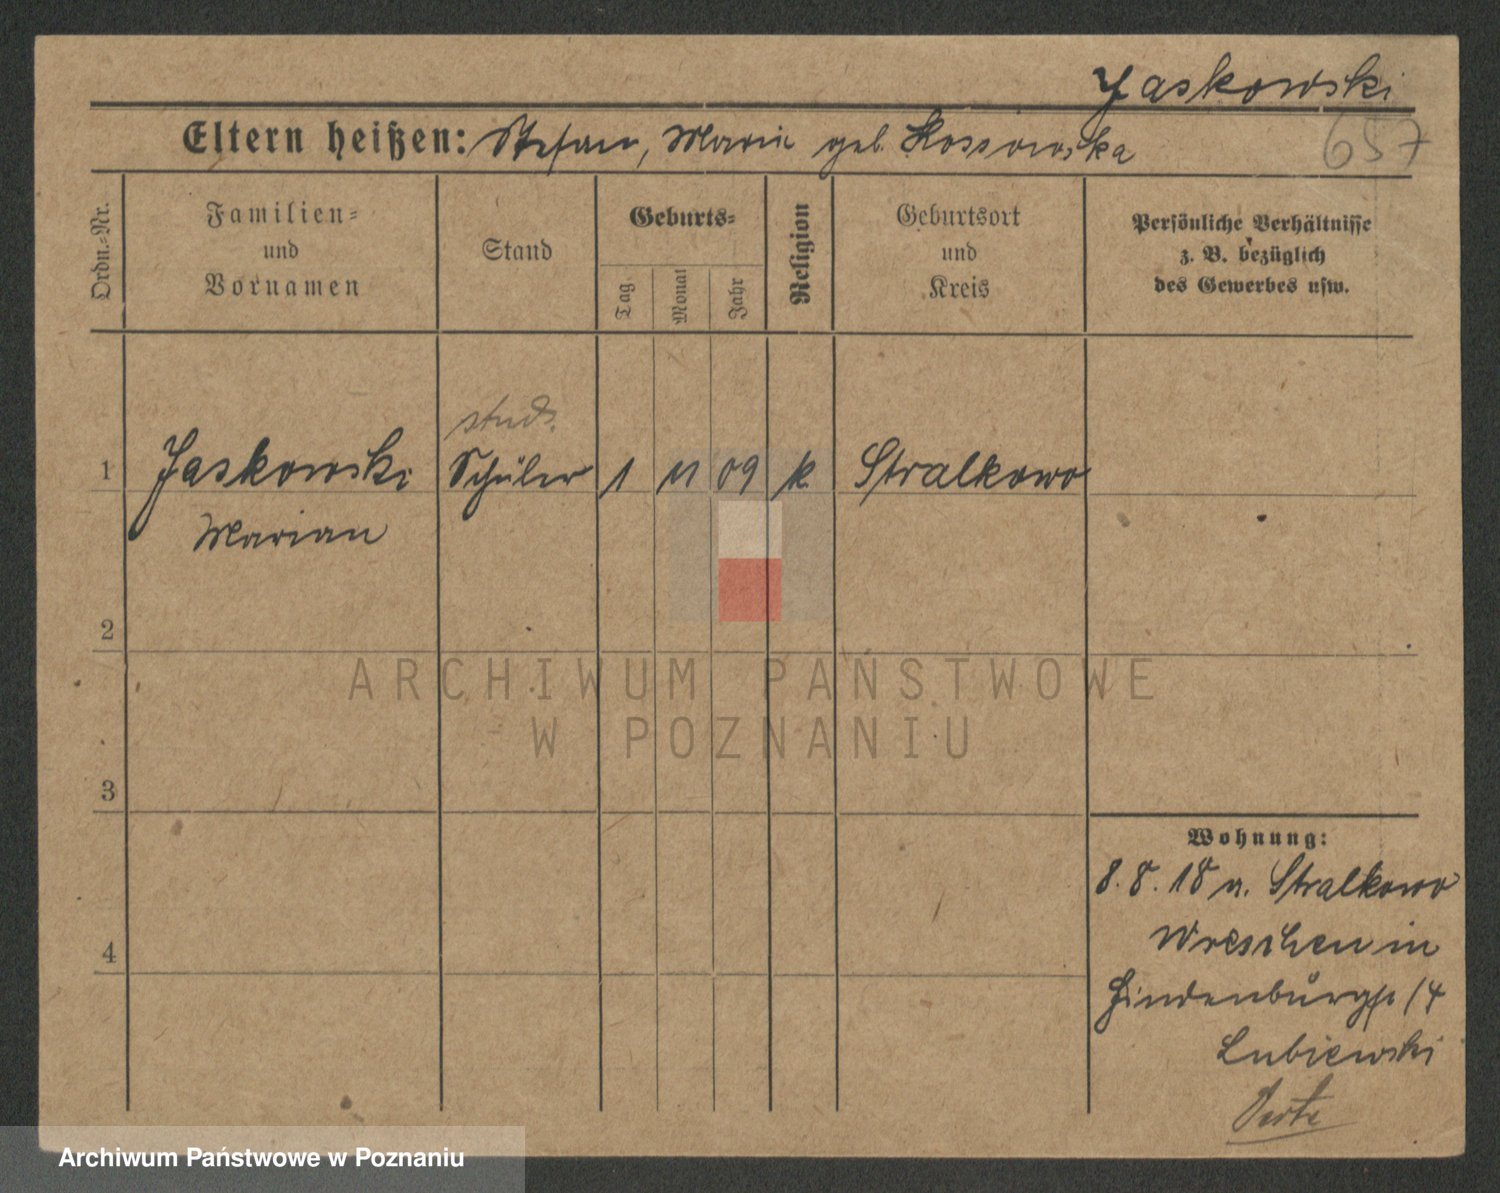 Jaskowski
Eltern heißen: Stefan, Maria geb. Kossowska
657
Ordn.=Nr.
Familien=
und
Vornamen
Stand
Geburts=
Tag
Monat
Jahr
Religion
Geburtsort
und
Kreis
Persönliche Verhältnisse
z. B. bezüglich
des Gewerbes usw.
stud.
1 Jaskowski Schüler 1 11 09 k. Stralkowo
Marian
2
3
4
ARCHIWUM PAŃSTWOWE
W POZNANIU
Wohnung:
8. 8. 18 a. Stralkowo
Wreschen in
Hindenburgstr 14
Lubiewski
Archiwum Państwowe w Poznaniu